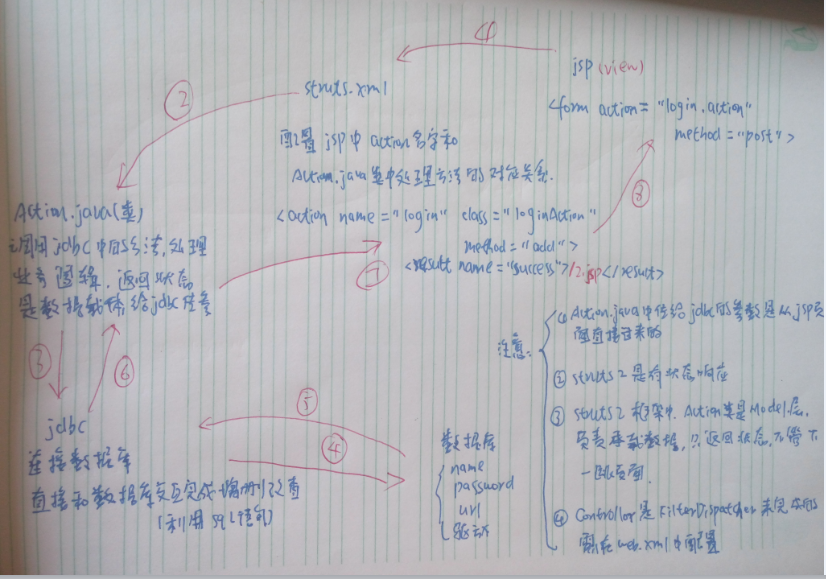 ①
jsp (view)
<form action = "login.action"
method = "post">
②
struts.xml
配置 jsp 中 action 名字和
Action.java 类中处理方法的对应关系.
<action name = "login" class = "loginAction"
method = "add">
<result name = "success">/2.jsp</result>
⑧
Action.java(类)
调用 jdbc 中的方法, 处理
业务逻辑. 返回状态
是数据载体, 给 jdbc 传参
⑦
③
⑥
jdbc
连接数据库
直接和数据库交互完成增删改查
(利用 sql 语句)
⑤
④
数据库
name
password
url
驱动
注意:
① Action.java 中传给 jdbc 的参数是从 jsp页
面直接过来的
② struts2 是有状态响应
③ struts2 框架中, Action类是 Model层,
负责承载数据, 只返回状态, 不管下
一跳页面.
④ Controller是 FilterDispatcher 来完成的
需在 web.xml 中配置